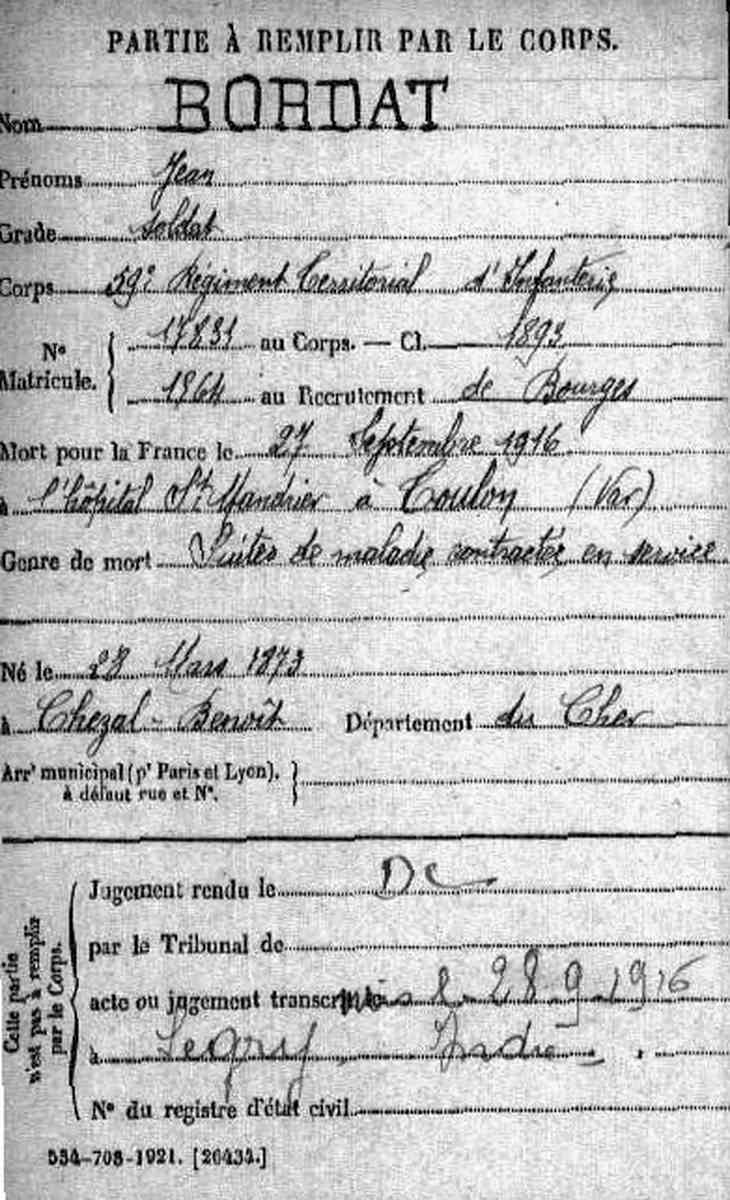 PARTIE À REMPLIR PAR LE CORPS.
Nom BORDAT
Prénoms Jean
Grade soldat
Corps 59e Régiment Territorial d'Infanterie
N° Matricule. 17831 au Corps. — Cl. 1893
1964 au Recrutement de Bourges
Mort pour la France le 27 Septembre 1916
à l'hôpital St Mandrier à Toulon (Var)
Genre de mort Suites de maladie contractée en service
Né le 28 Mars 1873
à Chezal-Benoît Département du Cher
Arrt municipal (pr Paris et Lyon), à défaut rue et N°.
Cette partie n'est pas à remplir par le Corps.
Jugement rendu le DC
par le Tribunal de
acte ou jugement le 28.9.1916
à Segry Indre
N° du registre d'état civil
534-708-1921. [26434.]